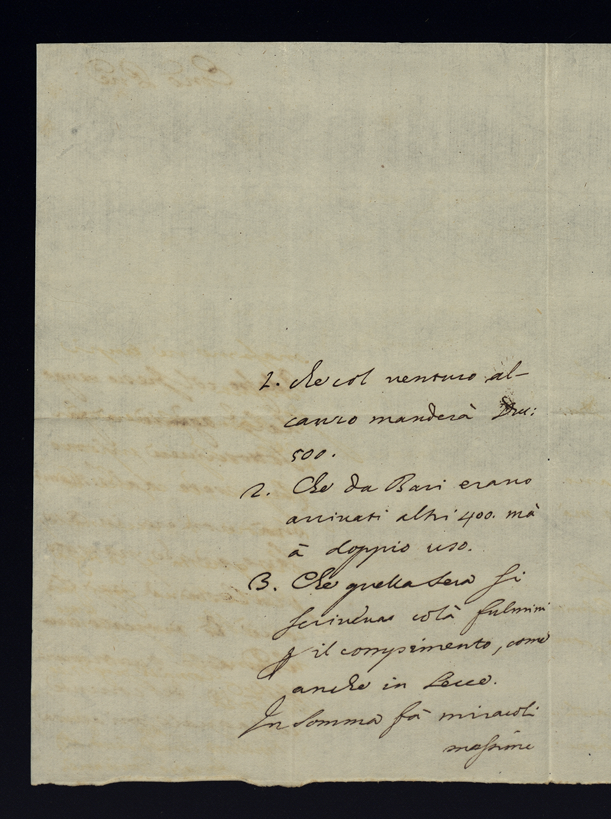 1. che col venturo al-
cauro manderà Du:
500.
2. Che da Bari erano
arrivati altri 400. mà
à doppio uso.
3. Che quella sera si
scrivevas colà fulmini
p il compimento, come
anche in Lecce.
In somma fà miracoli
massime